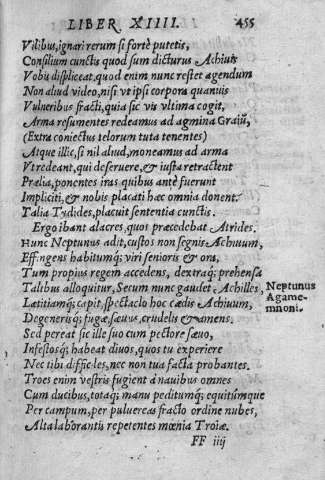 LIBER XIIII. 455
Vilibus, ignari rerum si fortè putetis,
Consilium cunctis quod sum dicturus Achiuis
Vobis displiceat, quod enim nunc restet agendum
Non aliud video, nisi vt ipsi corpora quamuis
Vulneribus fracti, quia sic vis vltima cogit,
Arma resumentes redeamus ad agmina Graiũ,
(Extra coniectus telorum tuta tenentes)
Atque illic, si nil aliud, moneamus ad arma
Vt redeant, qui deseruere, & iusta retractent
Prælia, ponentes iras quibus antè fuerunt
Impliciti, & nobis placati hæc omnia donent.
Talia Tydides, placuit sententia cunctis.
Ergo ibant alacres, quos præcedebat Atrides.
Hunc Neptunus adit, custos non segnis Achiuum,
Effingens habitumq; viri senioris & ora,
Tum propius regem accedens, dextraq; prehensa
Talibus alloquitur, Secum nunc gaudet Achilles,
Neptunus
Agame-
mnoni.
Lætitiamq; capit, spectaclo hoc cædis Achiuum,
Degenerisq; fugæ, sæuus, crudelis & amens.
Sed pereat sic ille suo cum pectore sæuo,
Infestosq; habeat diuos, quos tu experiere
Nec tibi difficiles, nec non tua facta probantes.
Troes enim vestris fugient à nauibus omnes
Cum ducibus, totaq; manu peditumq; equitũmque
Per campum, per puluereas fracto ordine nubes,
Alta laborantis repetentes mœnia Troiæ.
FF iiij